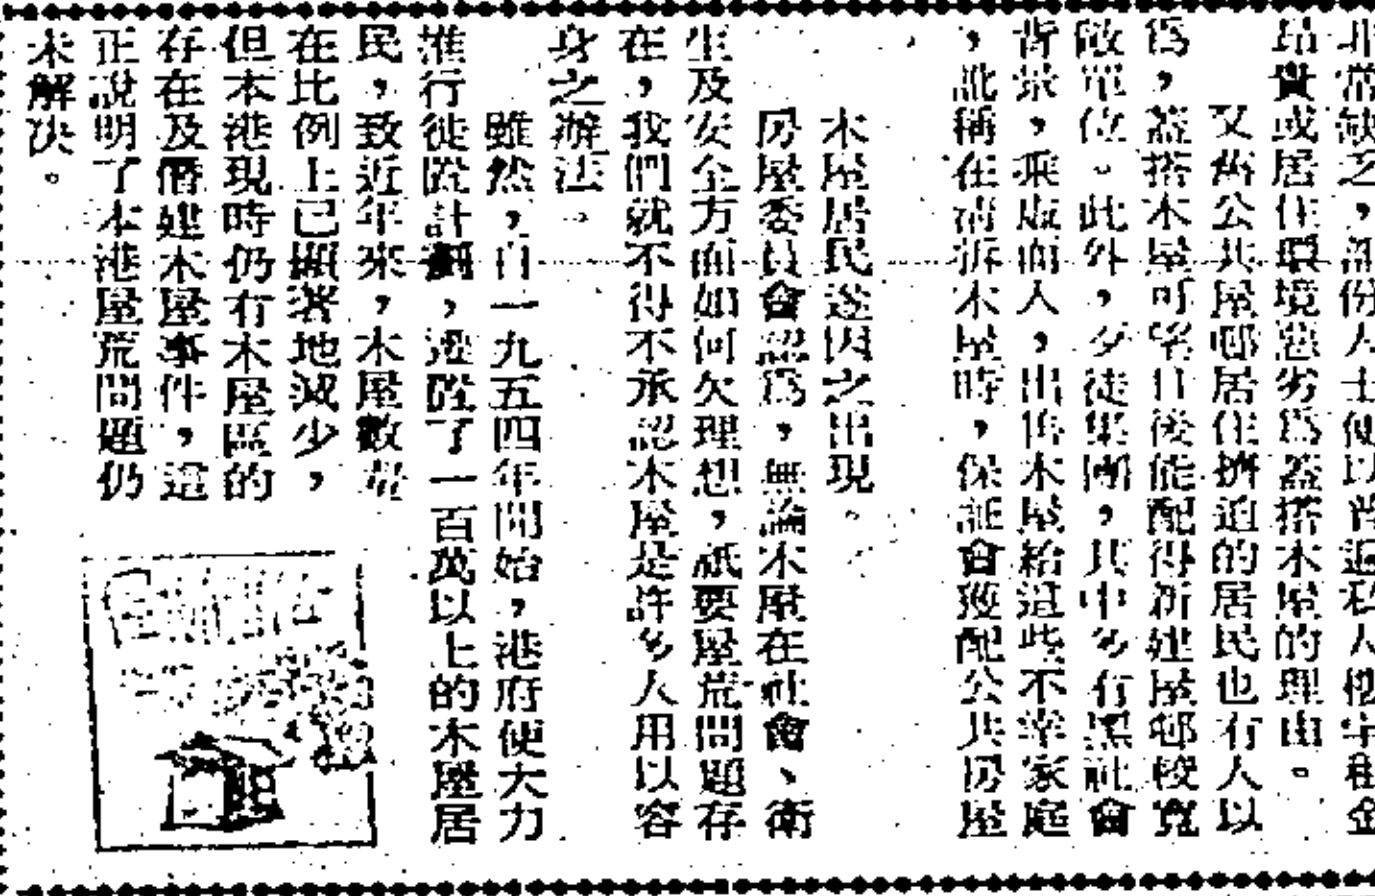 非常缺乏，部份人士便以普遍私人樓宇租金
昂貴或居住環境惡劣爲蓋搭木屋的理由。
又舊公共屋邨居住擠迫的居民也有人以
爲，蓋搭木屋可望日後能配得新建屋邨較寬
敞單位。此外，歹徒集團，其中多有黑社會
背景，乘虛而入，出售木屋給這些不幸家庭
，訛稱在清拆木屋時，保証會獲配公共房屋
木屋居民遂因之出現。
房屋委員會認爲，無論木屋在社會、衛
生及安全方面如何欠理想，祇要屋荒問題存
在，我們就不得不承認木屋是許多人用以容
身之辦法。
雖然，自一九五四年開始，港府便大力
推行徙置計劃，遷置了一百萬以上的木屋居
民，致近年來，木屋數量
在比例上已顯著地減少，
但本港現時仍有木屋區的
存在及僭建木屋事件，這
正說明了本港屋荒問題仍
未解決。